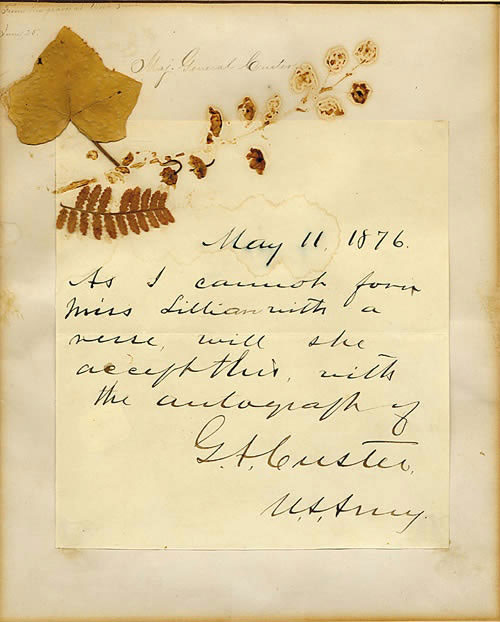 From the grave of
June 25.
Maj. General Custer
May 11, 1876.
As I cannot favor
Miss Lillian with a
verse, will she
accept this, with
the autograph of
G.A. Custer.
U.S. Army.